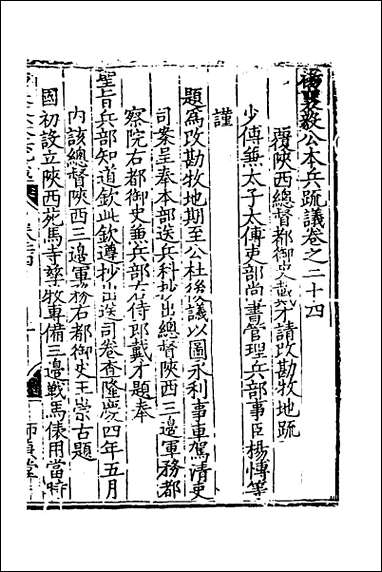 楊襄毅公本兵疏議卷之二十四
覆陝西總督都御史戴才請改勘牧地疏
少傅兼太子太傅吏部尚書管理兵部事臣楊博等
謹
題爲改勘牧地期至公杜後議以圖永利事車駕清吏
司案呈奉本部送兵科抄出總督陝西三邊軍務都
察院右都御史兼兵部右侍郎戴才題奉
聖旨兵部知道欽此欽遵抄出送司卷查隆慶四年五月
內該總督陝西三邊軍務右都御史王崇古題
國初設立陝西苑馬寺孳牧專備三邊戰馬俵用當時
師貞堂